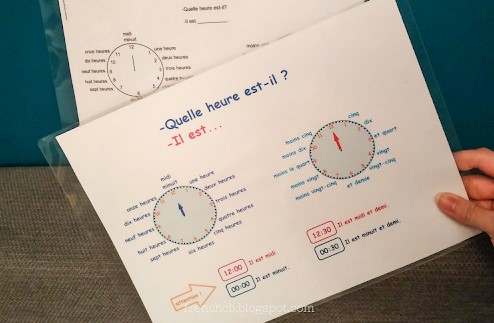 -Quelle heure est-il?
-Il est
midi
minuit
onze heures
une heure
dix heures
deux heures
neuf heures
trois heures
huit heures
sept heures
-Quelle heure est-il ?
-Il est...
midi
minuit
une heure
deux heures
trois heures
quatre heures
cinq heures
six heures
sept heures
huit heures
neuf heures
dix heures
onze heures
cinq
dix
et quart
vingt
vingt-cinq
et demie
moins vingt-cinq
moins vingt
moins le quart
moins dix
moins cinq
attention !
12:00 Il est midi.
00:00 Il est minuit.
12:30 Il est midi et demi.
00:30 Il est minuit et demi.
frenchcb.blogspot.com